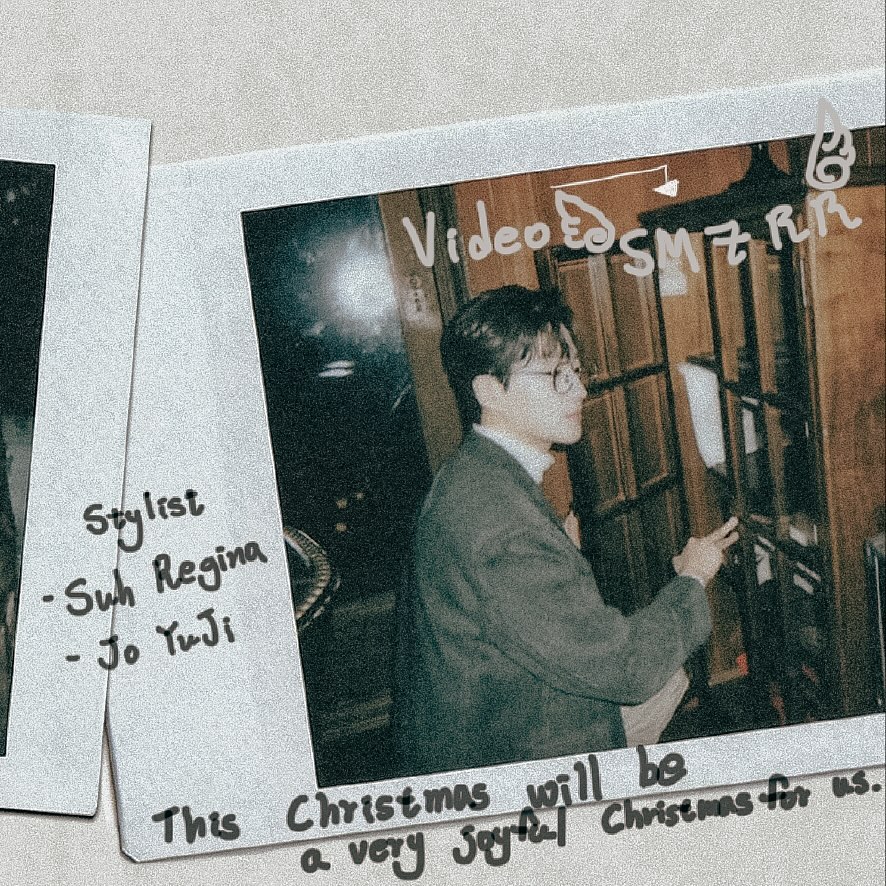 Video SMZRR
Stylist
- Suh Regina
- Jo YuJi
This Christmas will be
a very joyful Christmas for us.